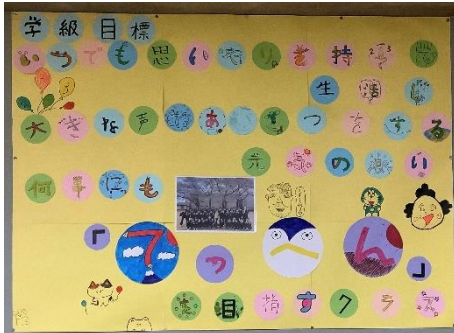 学級目標
いつでも思いやりを持
生活
大きな声であいさつをする
元気の良い
何事にも
「７つ
ん」
を目指すクラス